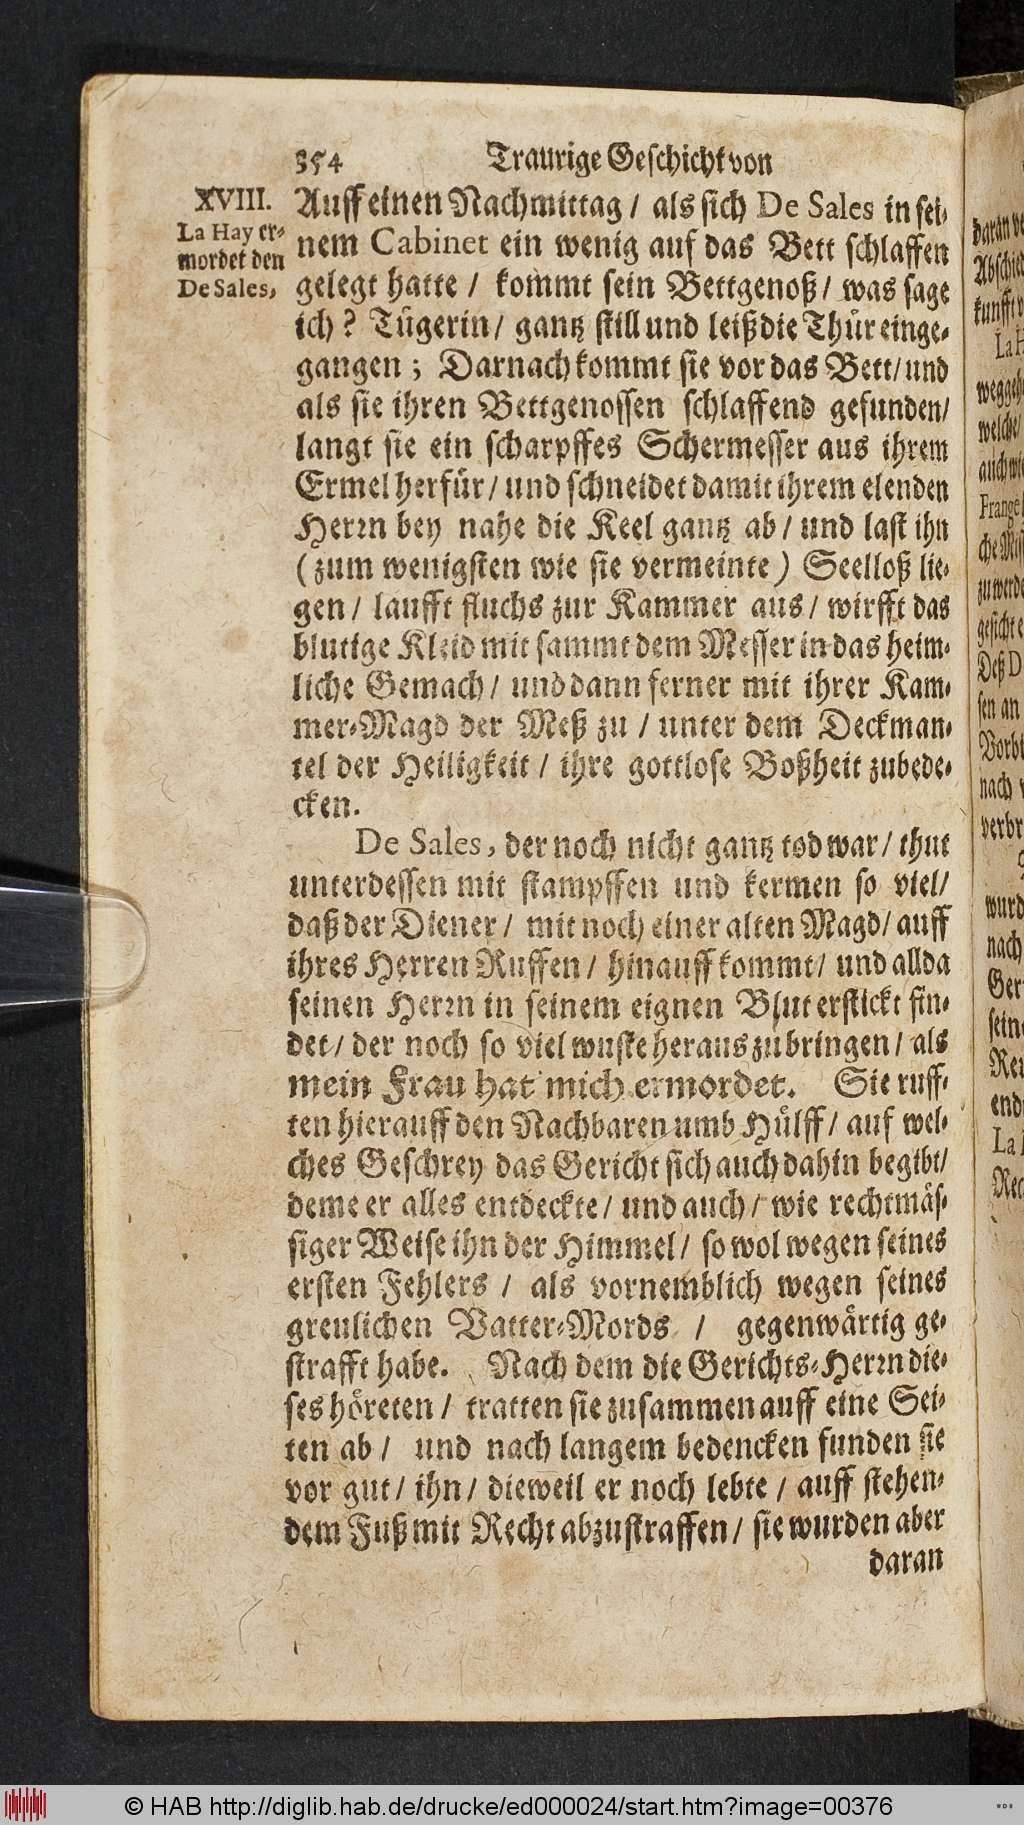 354 Traurige Geschicht von
XVIII.
La Hay er⸗
mordet den
De Sales,
Auff einen Nachmittag / als sich De Sales in sei⸗
nem Cabinet ein wenig auf das Bett schlaffen
gelegt hatte / kommt sein Bettgenoß / was sage
ich? Tügerin / gantz still und leiß die Thür einge⸗
gangen; Darnach kommt sie vor das Bett / und
als sie ihren Bettgenossen schlaffend gefunden /
langt sie ein scharpffes Schermesser aus ihrem
Ermel herfür / und schneidet damit ihrem elenden
Herrn bey nahe die Keel gantz ab / und last ihn
(zum wenigsten wie sie vermeinte) Seelloß lie⸗
gen / laufft fluchs zur Kammer aus / wirfft das
blutige Kleid mit sammt dem Messer in das heim⸗
liche Gemach / und dann ferner mit ihrer Kam⸗
mer⸗Magd der Meß zu / unter dem Deckman⸗
tel der Heiligkeit / ihre gottlose Boßheit zubede⸗
cken.
De Sales, der noch nicht gantz tod war / thut
unterdessen mit stampffen und kermen so viel /
daß der Diener / mit noch einer alten Magd / auff
ihres Herren Ruffen / hinauff kommt / und allda
seinen Herrn in seinem eignen Blut erstickt fin⸗
det / der noch so viel wuste heraus zubringen / als
mein Frau hat mich ermordet. Sie ruff⸗
ten hierauff den Nachbaren umb Hülff / auf wel⸗
ches Geschrey das Gericht sich auch dahin begibt /
deme er alles entdeckte / und auch / wie rechtmäs⸗
siger Weise ihn der Himmel / so wol wegen seines
ersten Fehlers / als vornemblich wegen seines
greulichen Vatter⸗Mords / gegenwärtig ge⸗
strafft habe. Nach dem die Gerichts⸗Herrn die⸗
ses höreten / tratten sie zusammen auff eine Sei⸗
ten ab / und nach langem bedencken funden sie
vor gut / ihn / dieweil er noch lebte / auff stehen⸗
dem Fuß mit Recht abzustraffen / sie wurden aber
daran
© HAB http://diglib.hab.de/drucke/ed000024/start.htm?image=00376